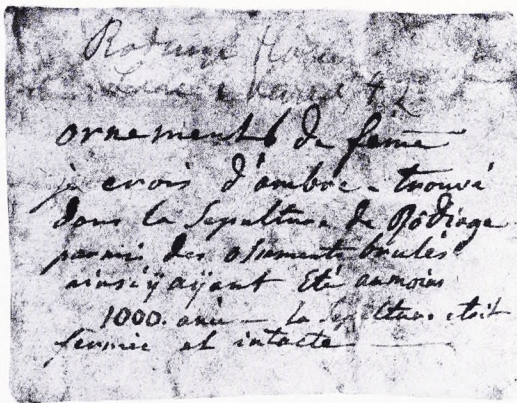 ornements de feme
je crois d'ambre - trouvé
dans la Sepulture de Rödinge
parmi des ossements brulés
ainsi ÿ aÿant Eté aumoins
1000. anné — la Sepulture etoit
fermée et intacte —